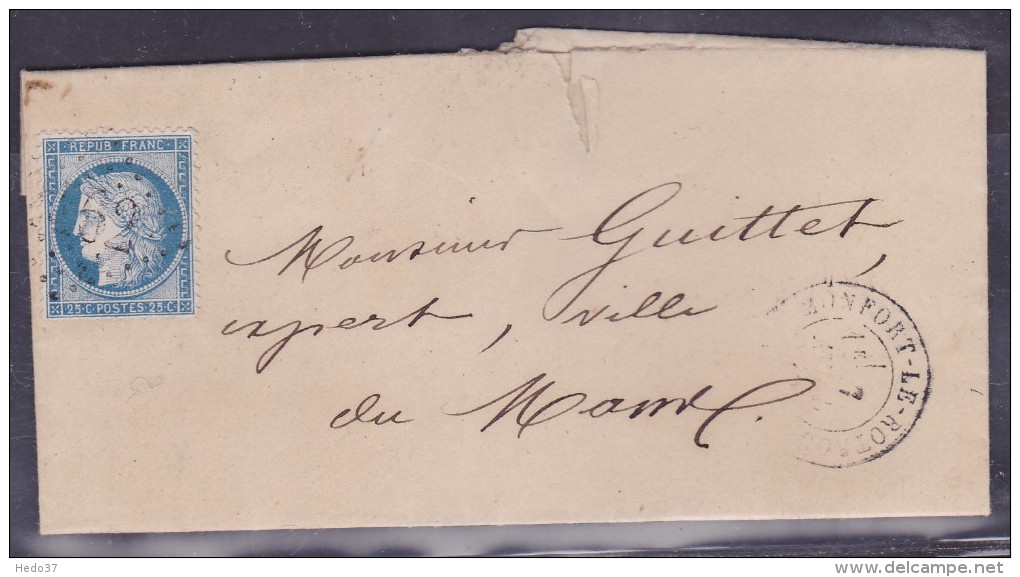 REPUB·FRANC·
25·C·POSTES·25·C·
Monsieur Guittet,
expert, ville
du Mans.
MONFORT-LE-ROTROU
1E
7
Hedo37
delcampe.net